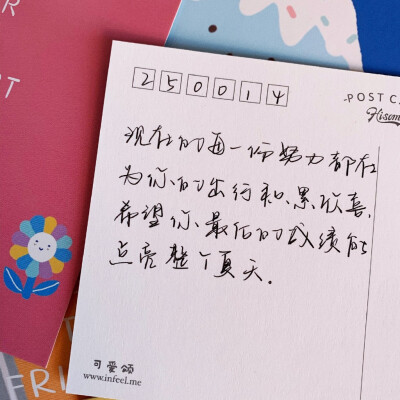 R
RT
250014
POST C
现在的每一份努力都在
为你的出行积累欢喜.
希望你最后的成绩能
点亮整个夏天.
可爱颂
www.infeel.me
FRI